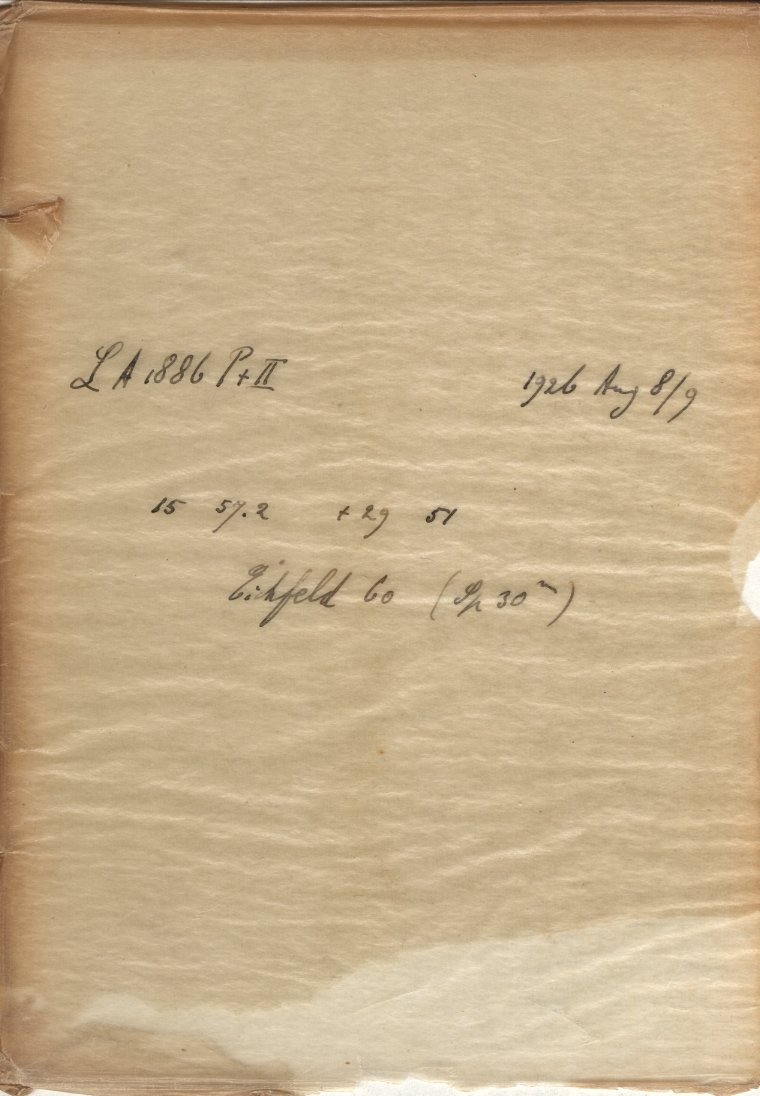 L A 1886 P + II 1926 Aug 8/9
15 57.2 + 29 51
Eichfeld 60 (Sp 30ᵐ)